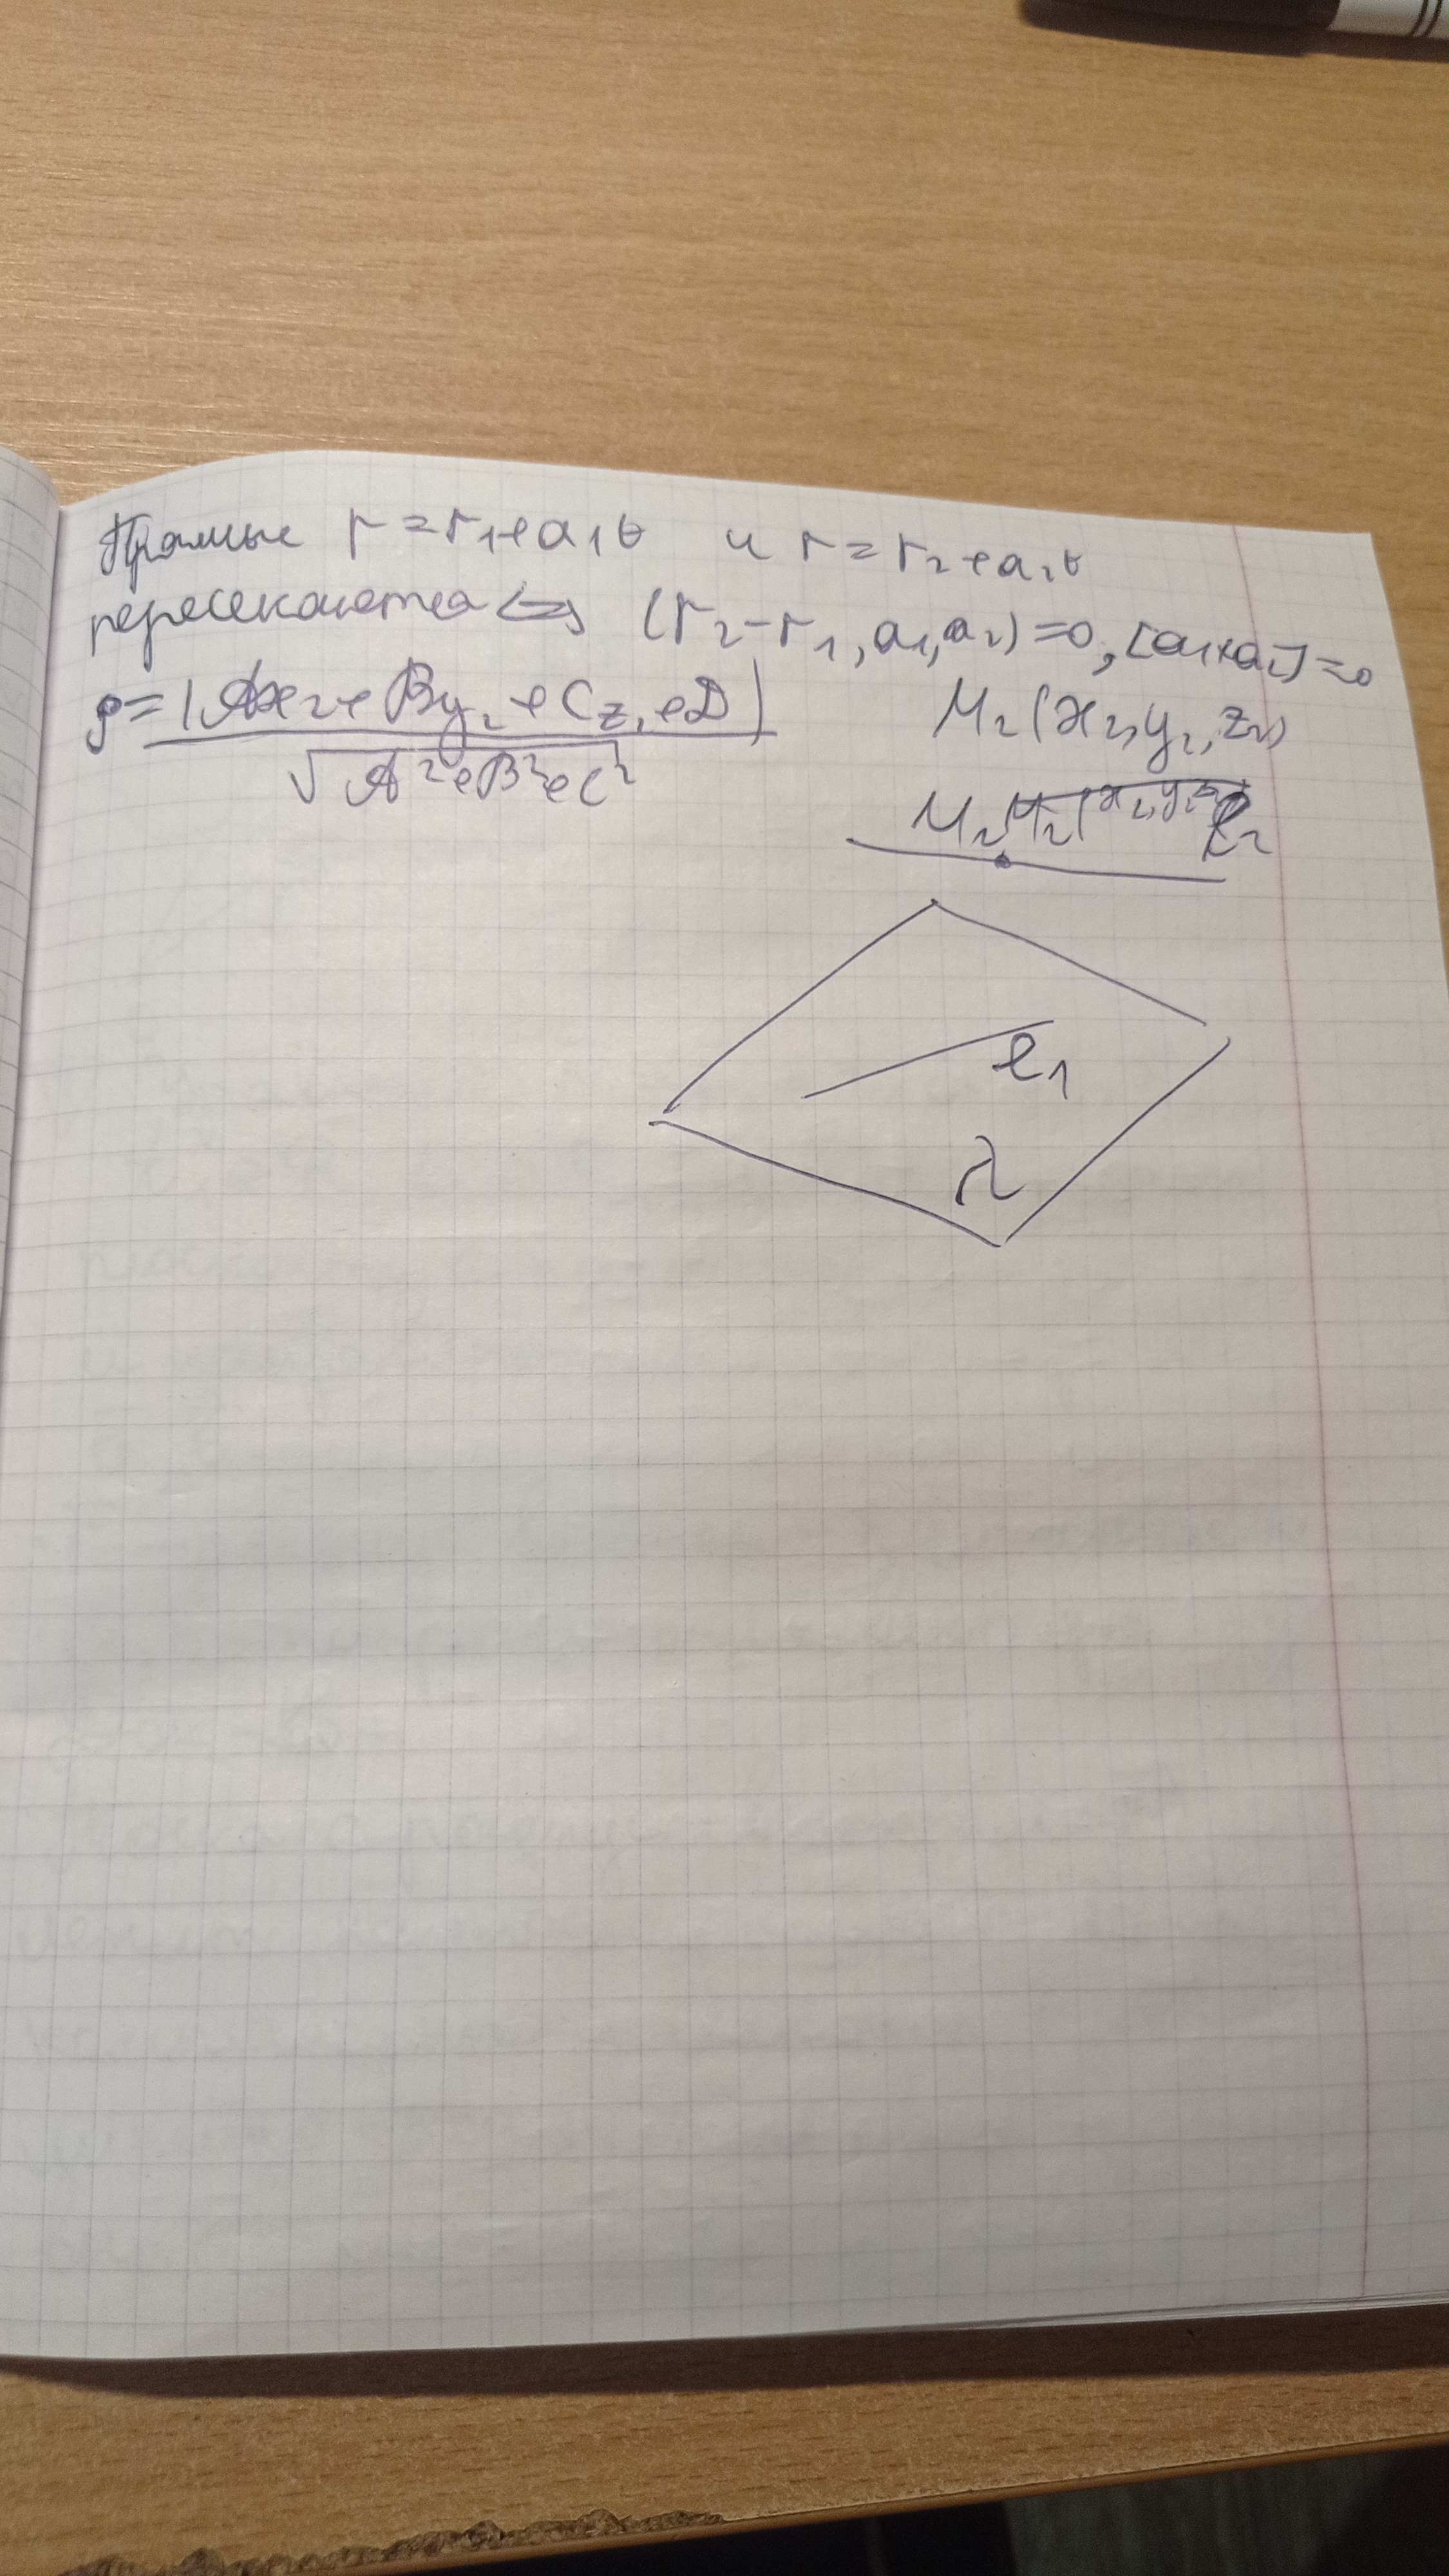 Прямые r = r₁ + a₁t и r = r₂ + a₂t
пересекаются ⇔ (r₂ - r₁, a₁, a₂) = 0, [a₁×a₂] = 0
ρ = |Ax₂ + By₂ + Cz₂ + D| / √A² + B² + C²
M₂(x₂, y₂, z₂)
M₂ ℓ₂
ℓ₁
π